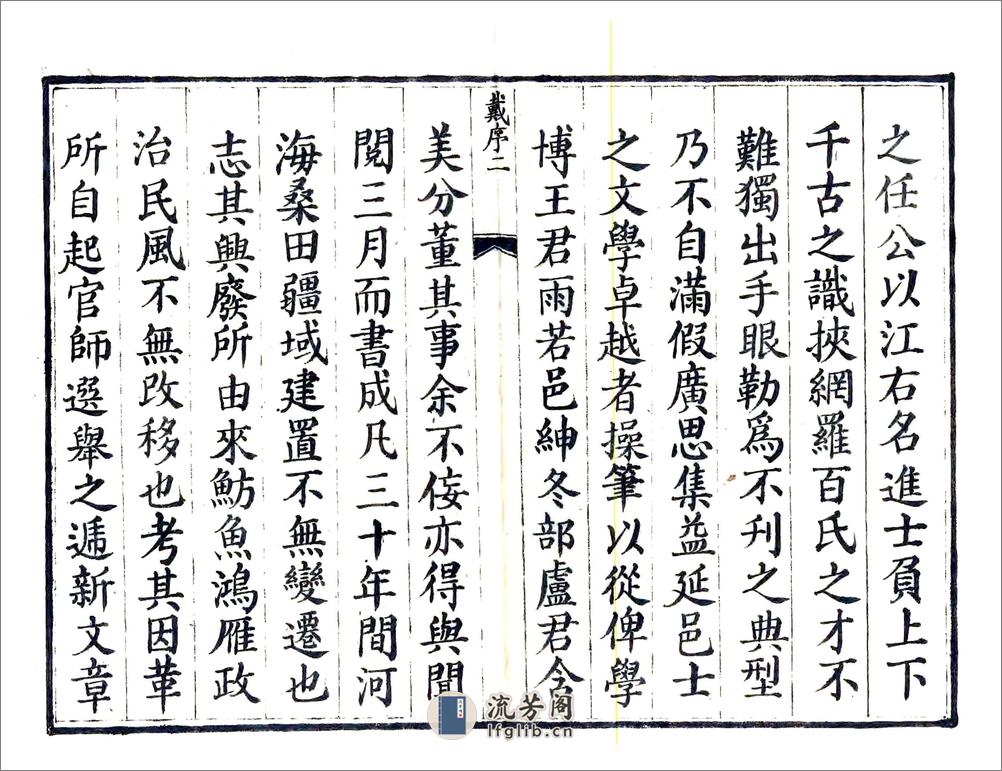 之任公以江右名進士負上下
千古之識挾網羅百氏之才不
難獨出手眼勒爲不刊之典型
乃不自滿假廣思集益延邑士
之文學卓越者操筆以從俾學
博王君雨若邑紳冬部盧君含
戴序二
美分董其事余不佞亦得與聞
閱三月而書成凡三十年間河
海桑田疆域建置不無變遷也
志其興廢所由來魴魚鴻雁政
治民風不無改移也考其因革
所自起官師選舉之遞新文章
流芳阁
lfglib.cn